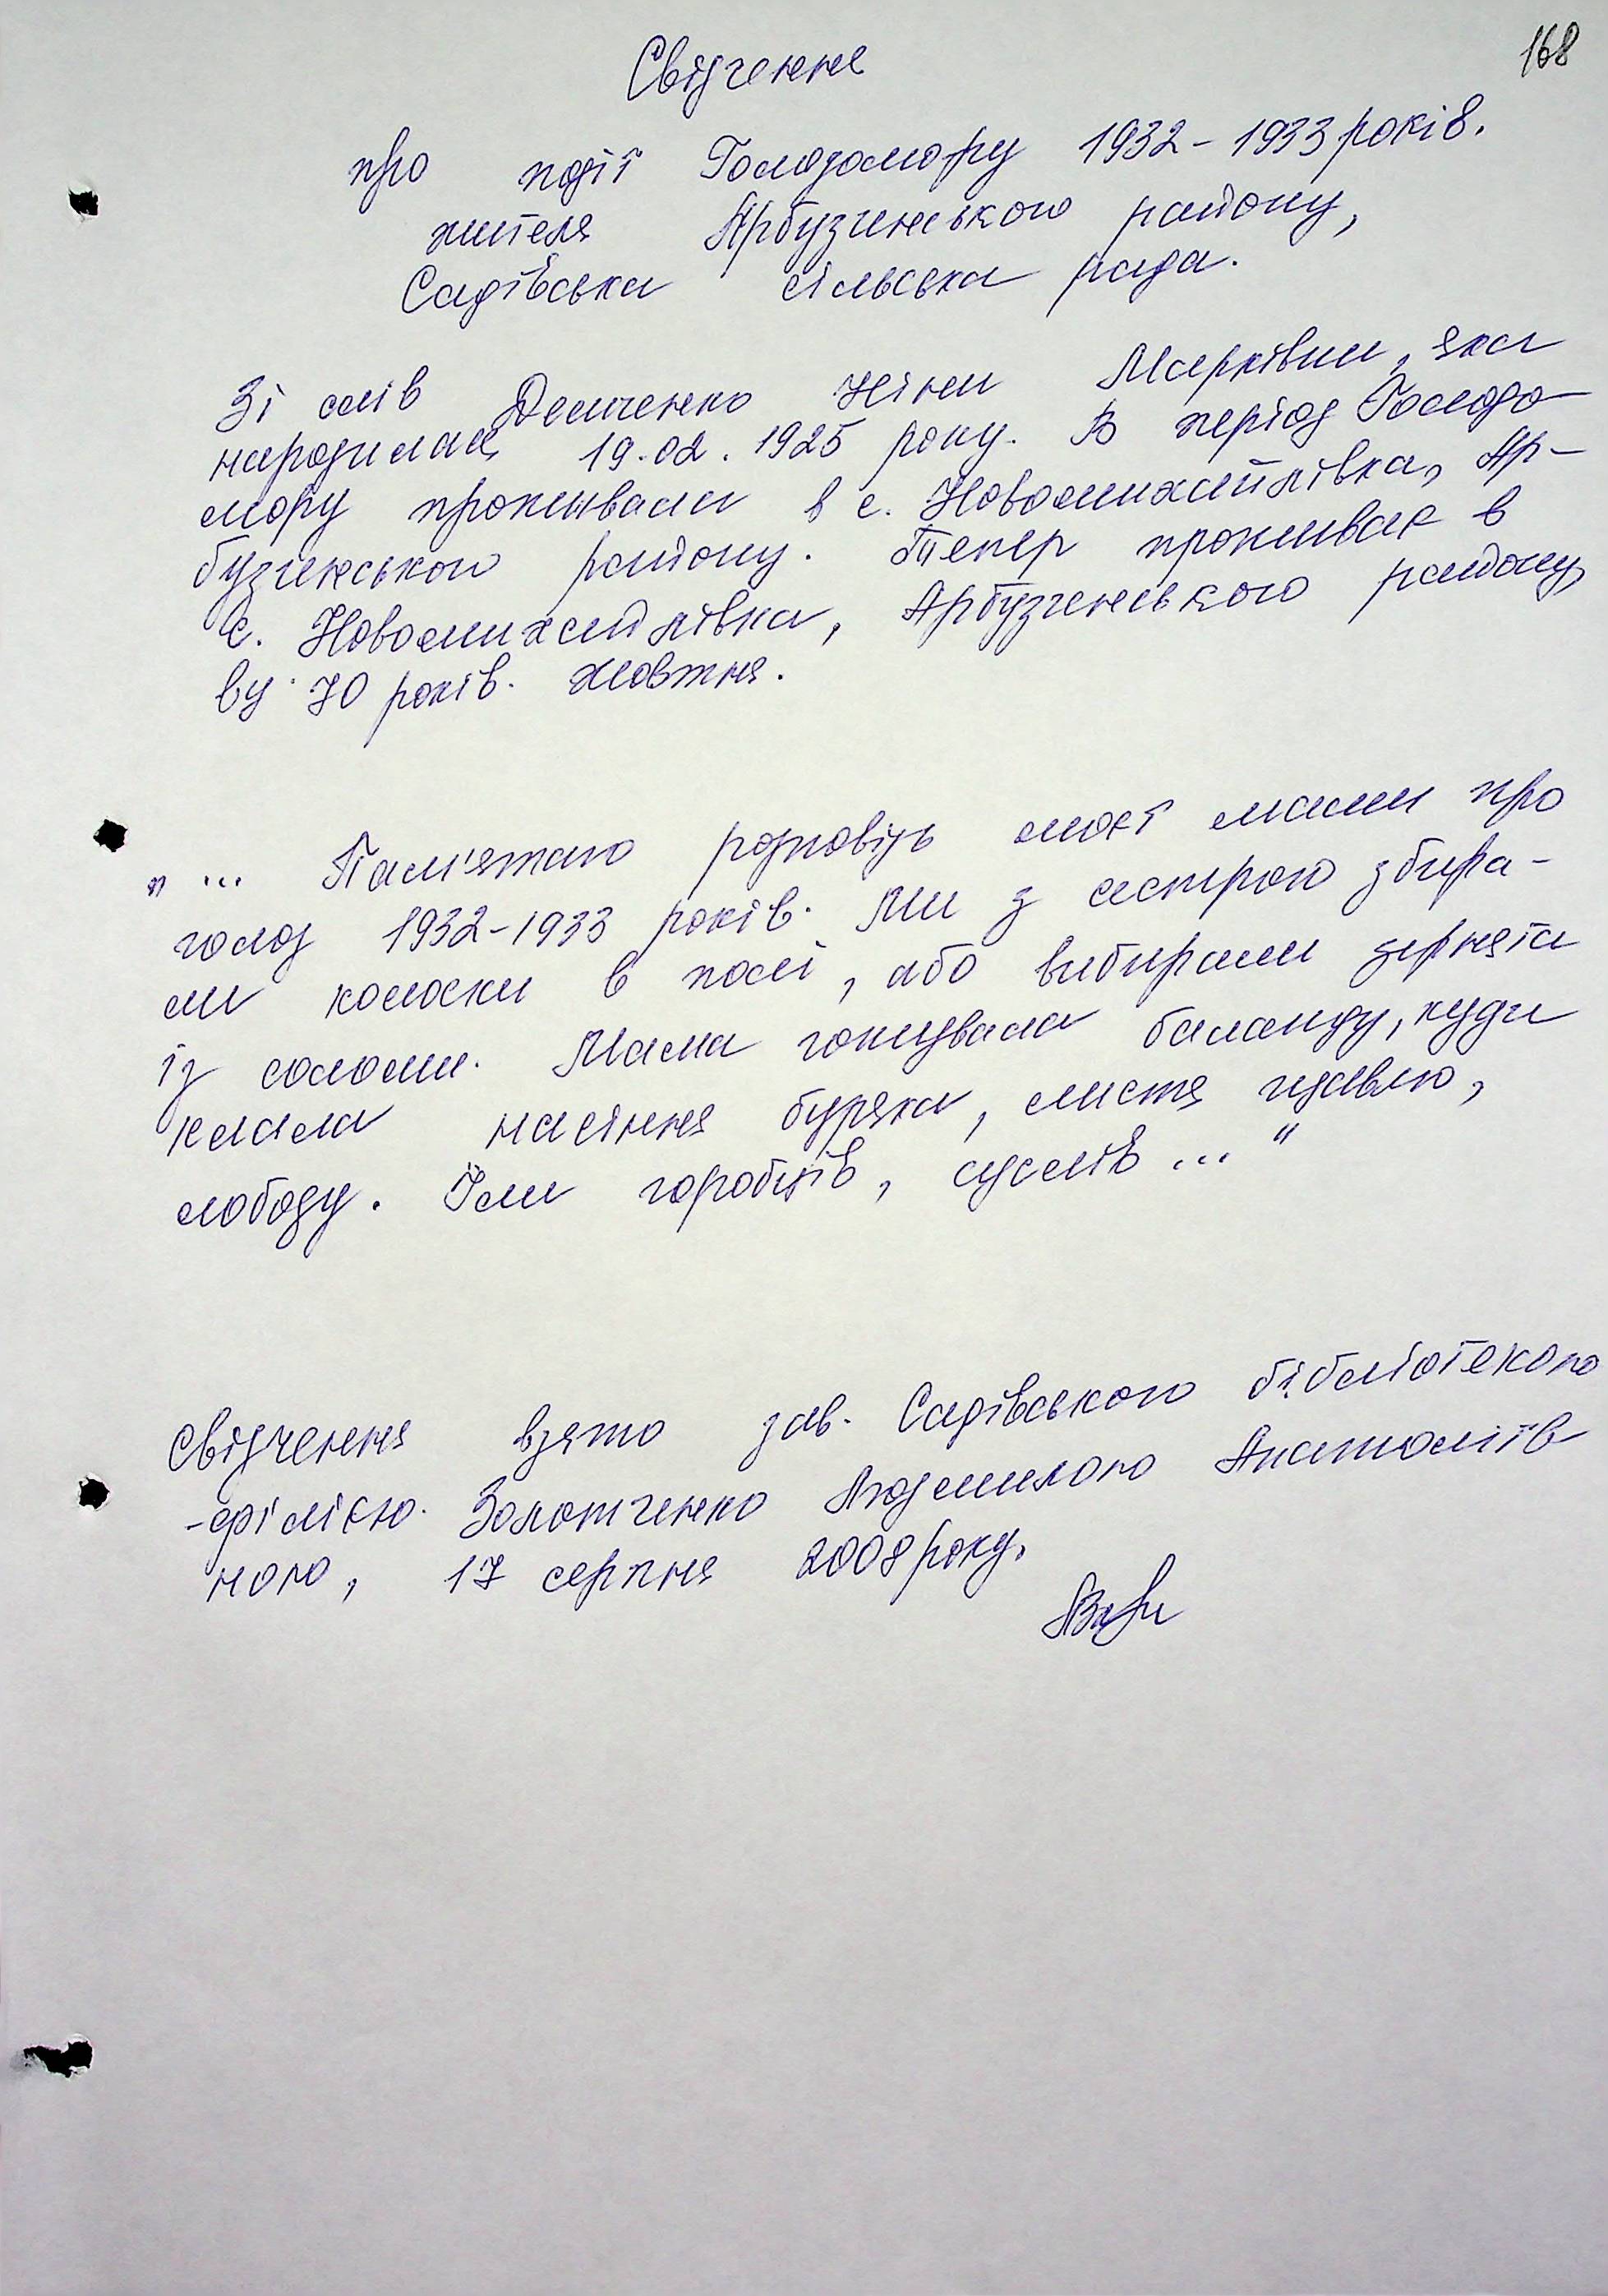 168
Свідчення
про події Голодомору 1932-1933 років.
жителя Арбузинського району,
Садівська сільська рада.
Зі слів Демченко Ніни Марківни, яка
народилася 19.02.1925 року. В період Голодо-
мору проживала в с. Новомихайлівка, Ар-
бузинського району. Тепер проживає в
с. Новомихайлівка, Арбузинського району,
вул 70 років Жовтня.
„... Пам'ятаю розповідь моєї мами про
голод 1932-1933 років. Ми з сестрою збира-
ли колоски в полі, або вибирали зернята
із соломи. Мама готувала баланду, куди
клала насіння буряка, листя щавлю,
лободу. Їли горобців, суслів ..."
Свідчення взято зав. Садівською бібліотекою
-філією. Золотченко Людмилою Анатоліїв-
ною, 17 серпня 2008 року.